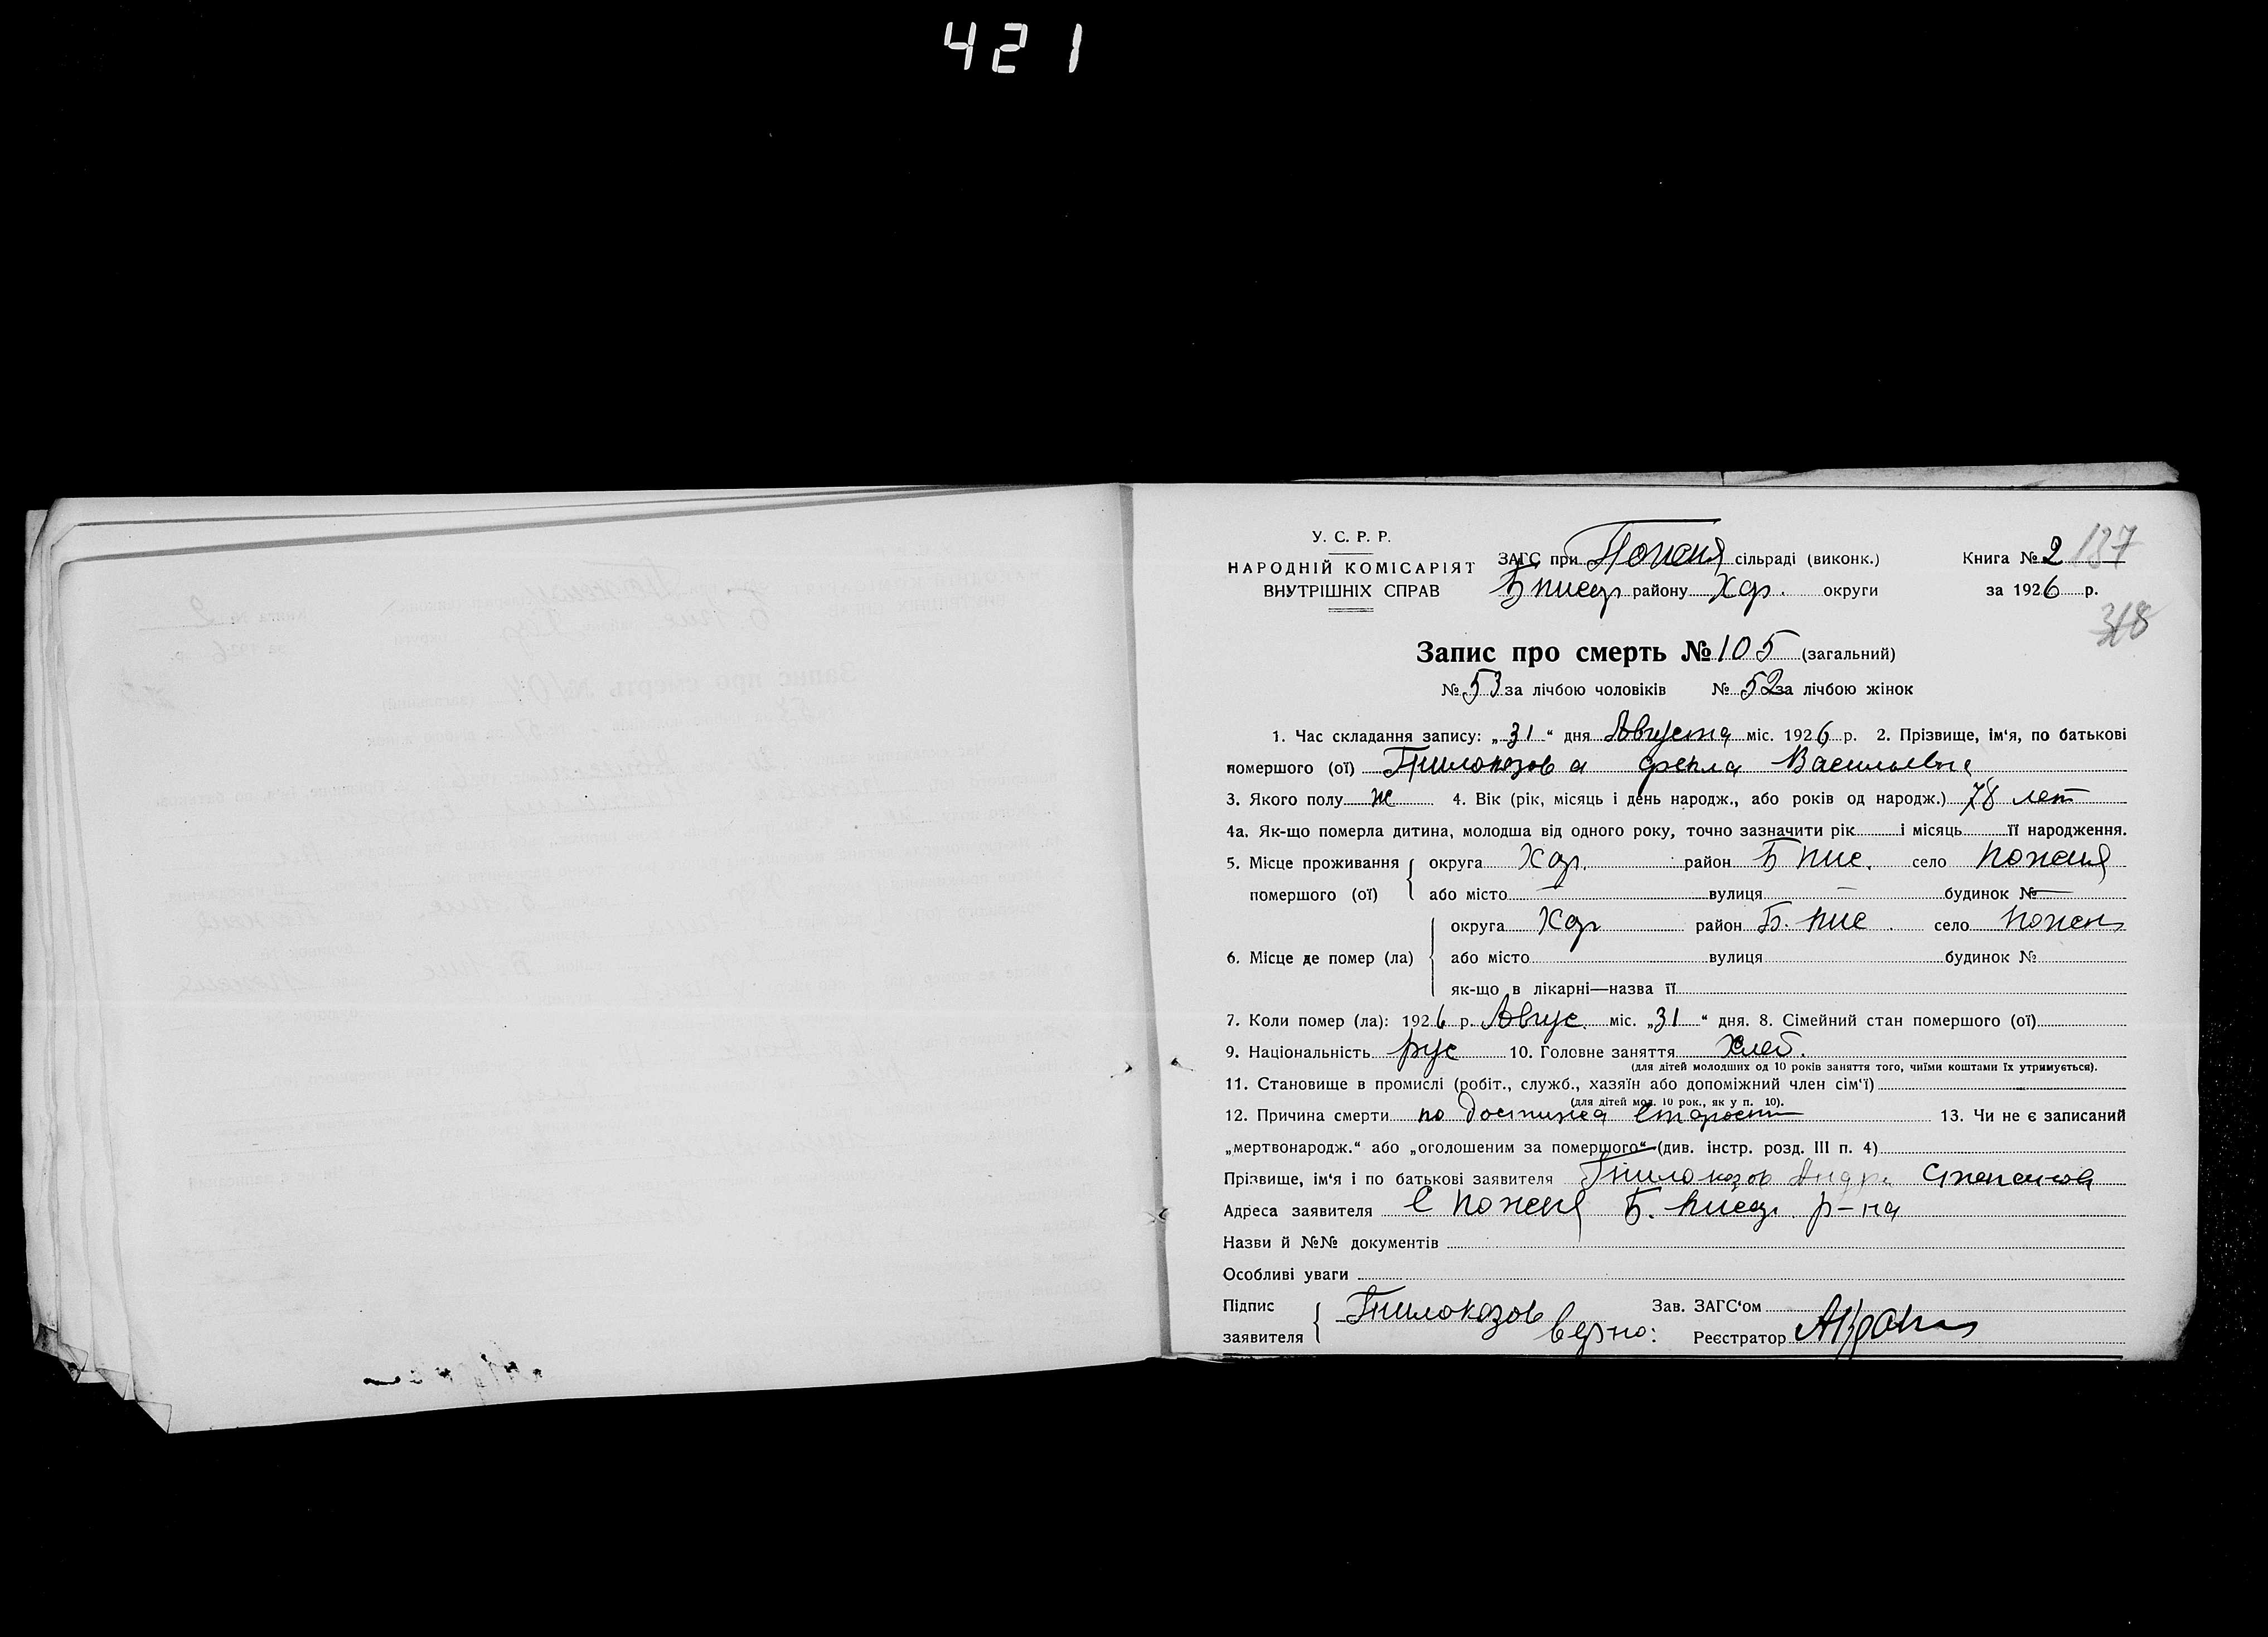 421
У. С. Р. Р.
НАРОДНІЙ КОМІСАРІЯТ
ВНУТРІШНІХ СПРАВ
ЗАГС при Поженя сільраді (виконк.)
Б писар району Хар. округи
Книга № 2 137
за 1926 р.
318
Запис про смерть № 105 (загальний)
№ 53 за лічбою чоловіків № 52 за лічбою жінок
1. Час складання запису: „31“ дня Августа міс. 1926 р. 2. Прізвище, ім‘я, по батькові
помершого (ої) Фекла Васильевна
3. Якого полу ж 4. Вік (рік, місяць і день народж., або років од народж.) 78 лет
4а. Як-що померла дитина, молодша від одного року, точно зазначити рік і місяць її народження.
5. Місце проживання округа Хар. район Б пис. село Поженя
помершого (ої) або місто — вулиця — будинок № —
округа Хар район Б. пис село Пожен
6. Місце де помер (ла) або місто вулиця будинок №
як-що в лікарні—назва її
7. Коли помер (ла): 1926 р. Авгус. міс. „31“ дня. 8. Сімейний стан помершого (ої)
9. Національність рус 10. Головне заняття Хлеб.
(для дітей молодших од 10 років заняття того, чиїми коштами їх утримується).
11. Становище в промислі (робіт., служб., хазяїн або допоміжний член сім‘ї)
(для дітей мол. 10 рок., як у п. 10).
12. Причина смерти по старости 13. Чи не є записаний
„мертвонародж.“ або „оголошеним за помершого“ (див. інстр. розд. III п. 4)
Прізвище, ім‘я і по батькові заявителя Андре Степанов
Адреса заявителя С Поженя Б. писар р-на
Назви й №№ документів
Особливі уваги
Підпис
заявителя
верно:
Зав. ЗАГС‘ом
Реєстратор